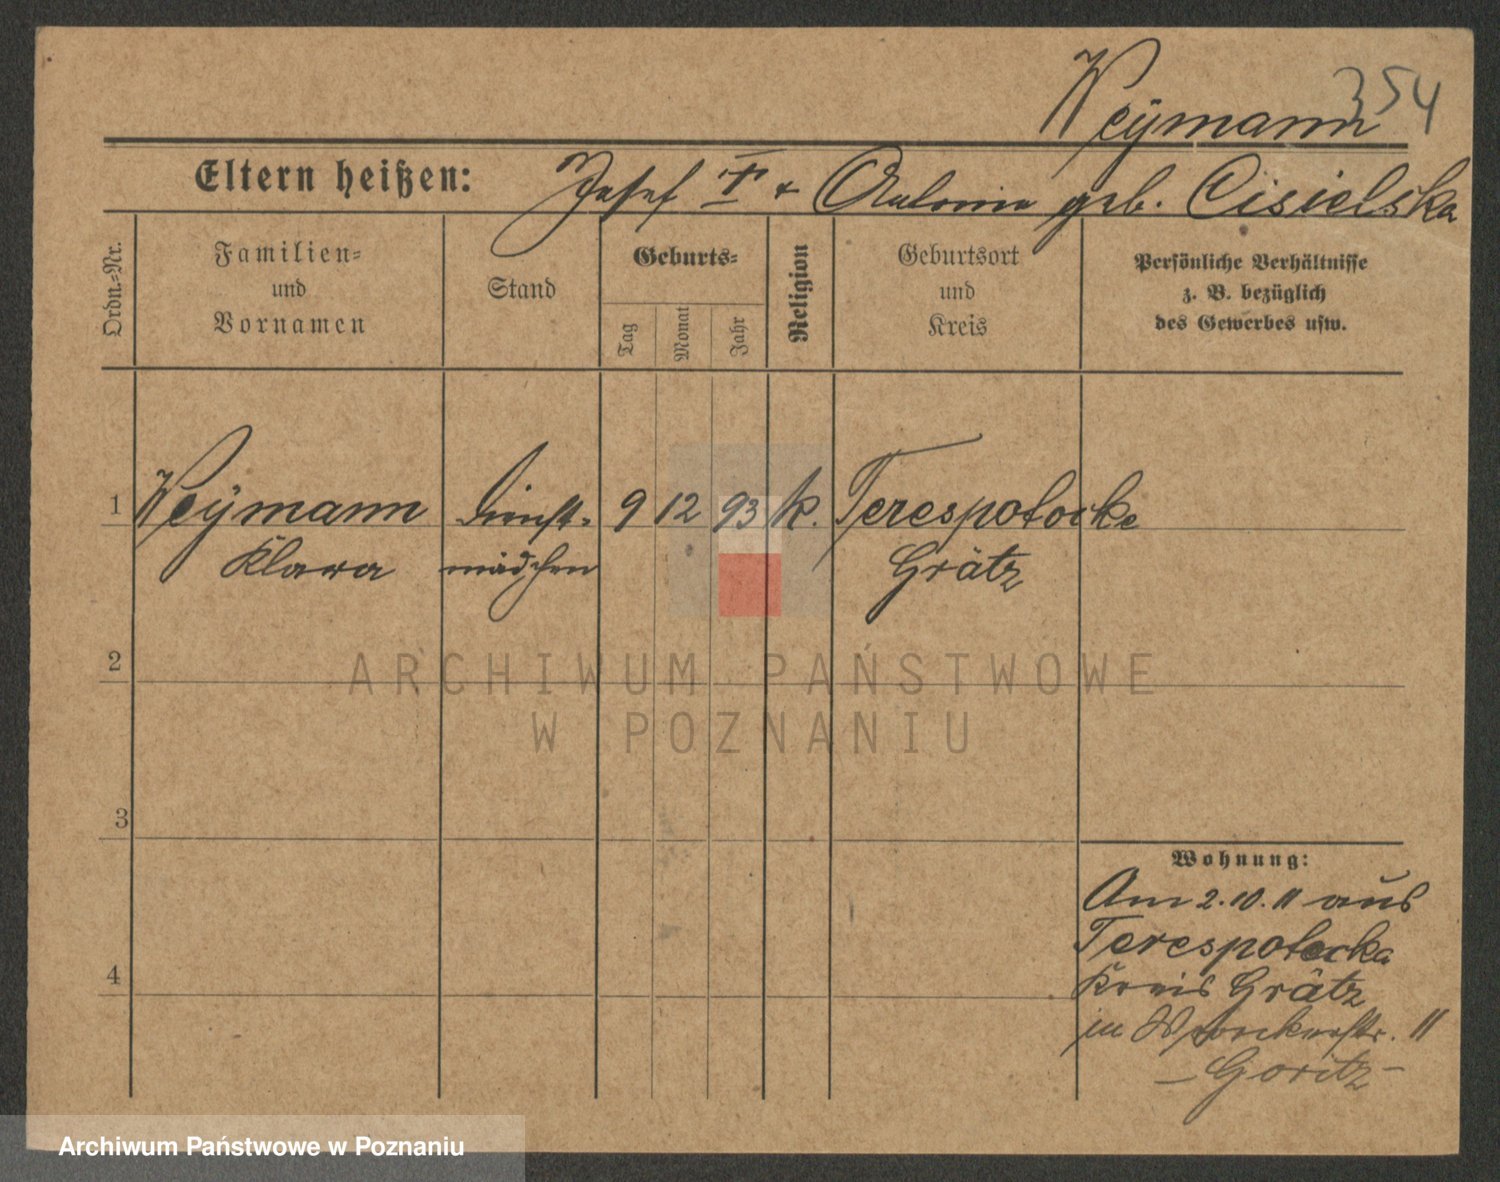 354
Weÿmann
Eltern heißen: Josef † + Antonina geb. Cisielska
Ordn.-Nr.
Familien-
und
Vornamen
Stand
Geburts-
Tag
Monat
Jahr
Religion
Geburtsort
und
Kreis
Persönliche Verhältnisse
z. B. bezüglich
des Gewerbes usw.
1 Weÿmann Dienst- 9 12 93 k. Terespotocke
Klara mädchen Grätz
2
3
4
Wohnung:
Am 2.10.11 aus
Terespotocka
Kreis Grätz
in Wronkerstr. 11
- Goritz -
ARCHIWUM PAŃSTWOWE
W POZNANIU
Archiwum Państwowe w Poznaniu